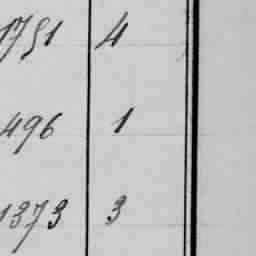 1751 4
496 1
1373 3